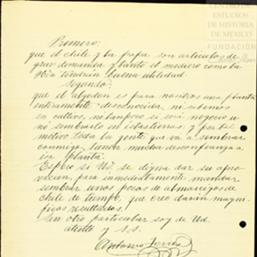 CENTRO
ESTUDIOS
DE HISTORIA
DE MÉXICO
FUNDACIÓN
Primero,
que el chile y la papa son artículos de
gran demanda y tanto el mediero como la
Cía tendrán buena utilidad.
Segundo,
que el algodon es para nosotros una planta
enteramente desconocida, ni sabemos
su cultivo, ni tampoco si será negocio u
no sembrarlo en
motivo toda la gente que va a sembrar
conmigo, tienen mucha desconfianza
en planta.
Espero si Ud. se digna dar su apro
vacion, para inmediatamente mandar
sembrar unos pocos de almacigos de
chile de tiempo, que creo darán magni-
ficos resultados.
Sin otro particular soy de Ud.
atento y S.S.
Antonio